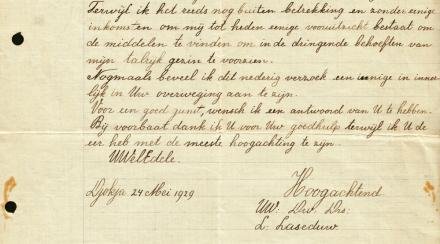 Terwijl ik het reeds nog buiten betrekking en zonder eenige
inkomsten om mij tot heden eenige vooruitzicht bestaat om
de middelen te vinden om in de dringende behoeften van
mijn talrijk gezin te voorzien.
Nogmaals beveel ik dit nederig verzoek een innige in inner
lijk in Uw overweging aan te zijn.
Voor een goed punt, wensch ik een antwoord van U te hebben.
Bij voorbaat dank ik U voor Uw goedhulp terwijl ik U de
eer heb met de meeste hoogachting te zijn.
UWelEdele.
Djokja 24 Mei 1929
Hoogachtend
UW: Dw Drs:
L. Laseduw